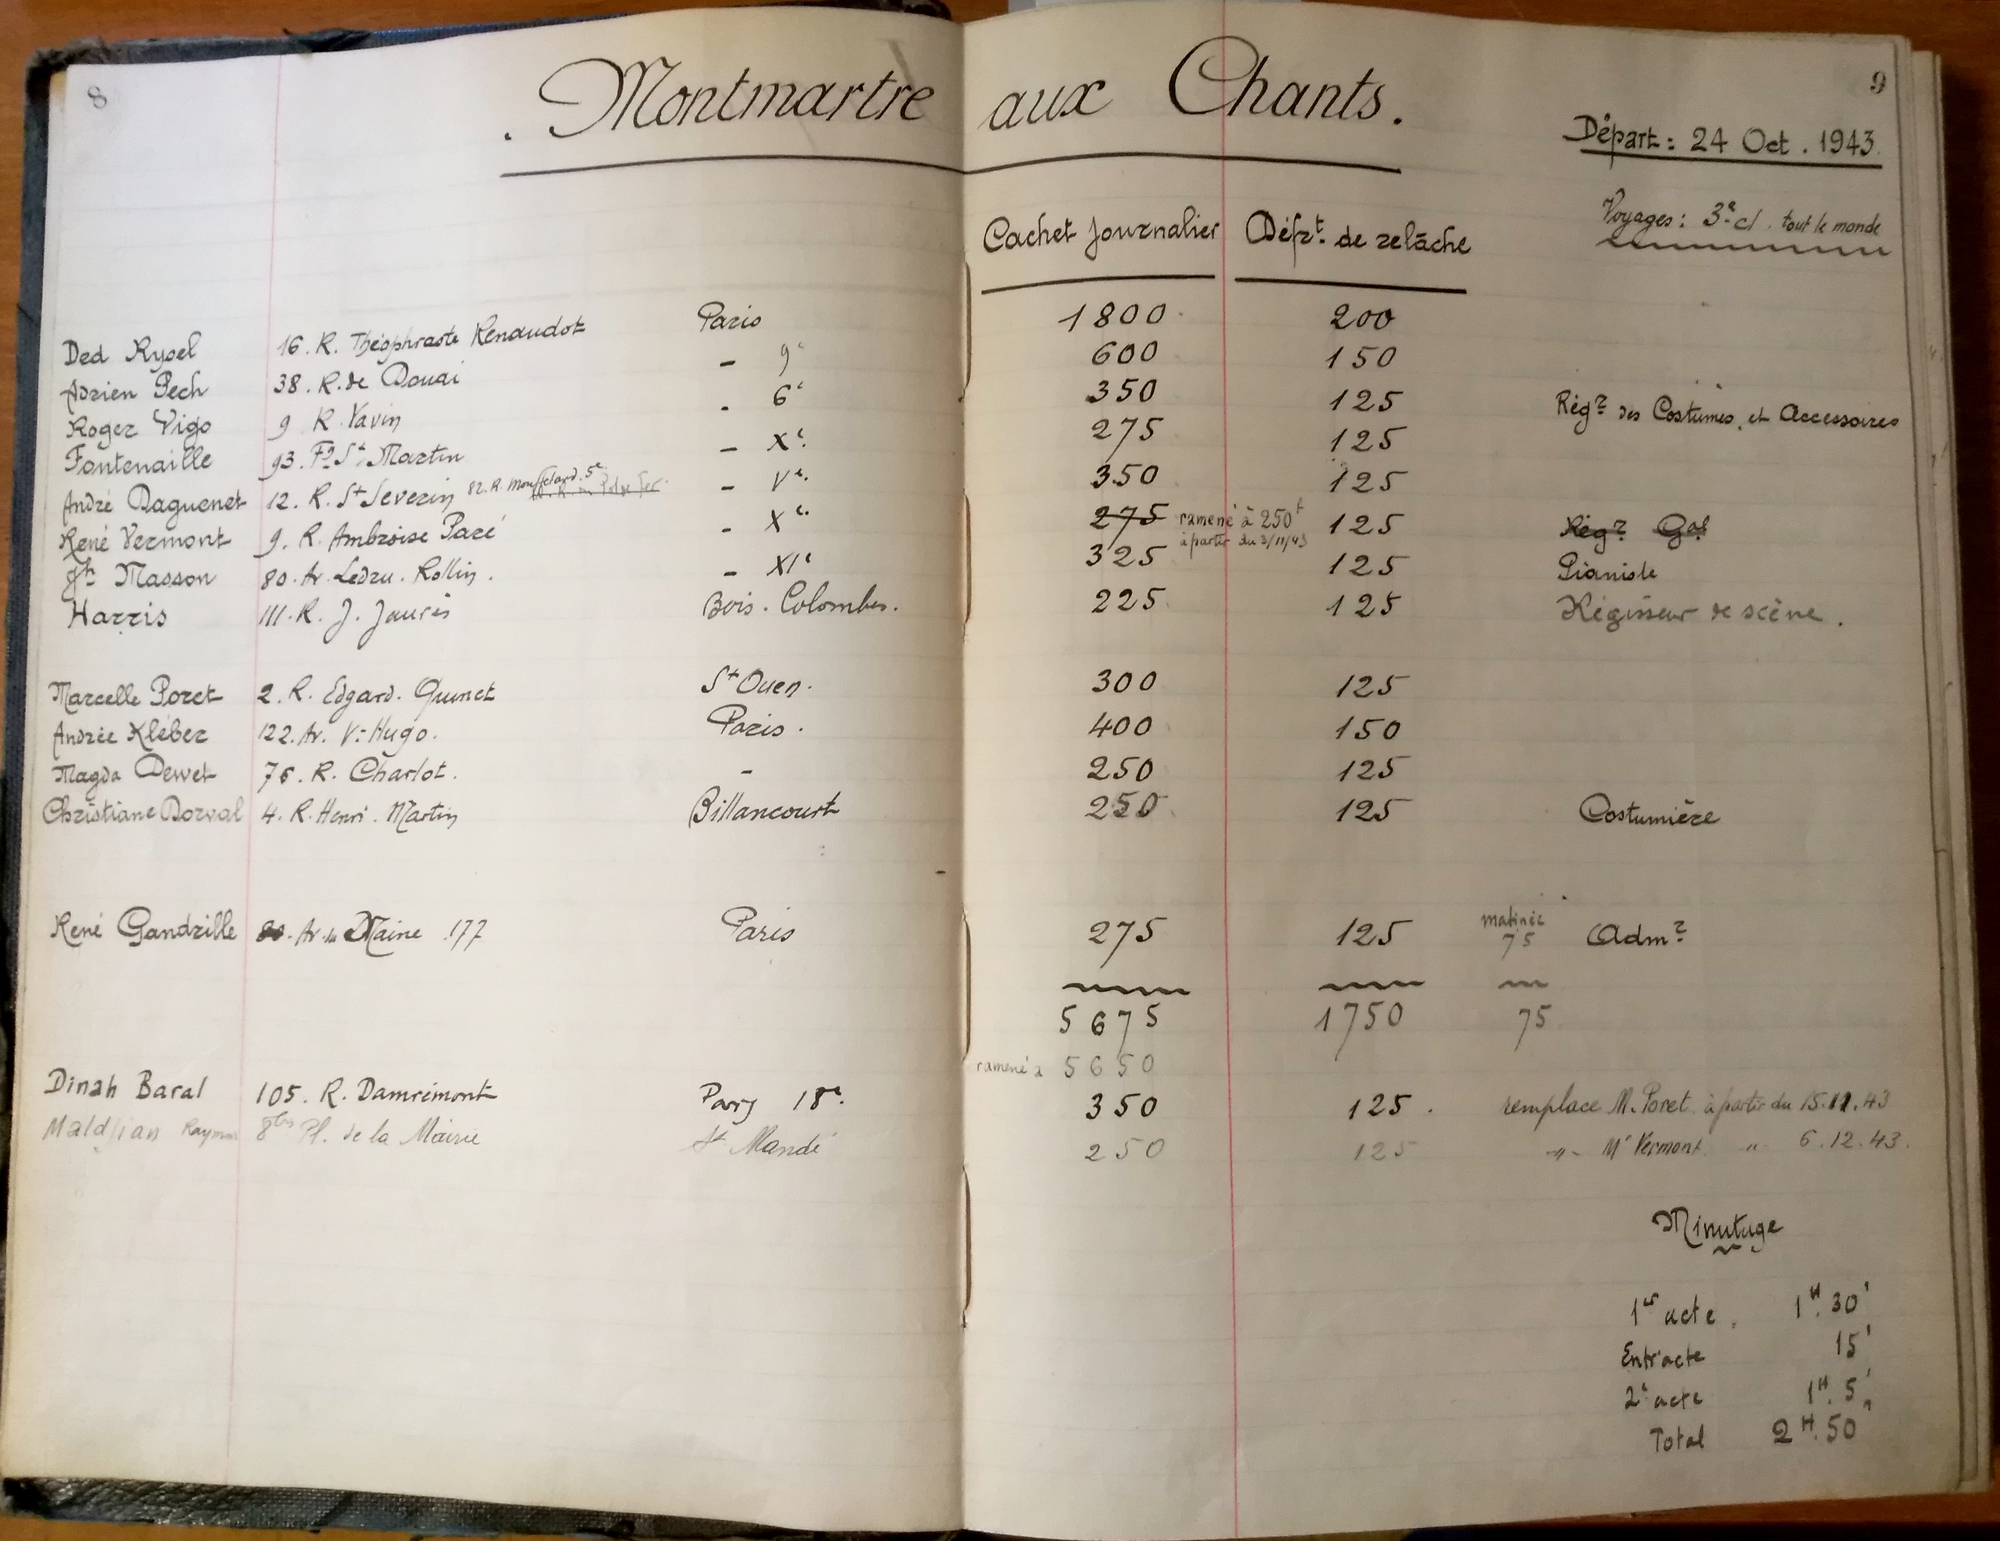 8
9
. Montmartre aux Chants .
Départ : 24 Oct . 1943
Voyages : 3e cl . tout le monde
Cachet Journalier Défrt. de relâche
Ded Rysel 16 . R. Théophraste Renaudot Paris 1800 200
Adrien Pech 38 . R. de Douai – 9e 600 150
Roger Vigo 9 R Vavin - 6e 350 125 Régr des Costumes et Accessoires
Fontenaille 93. Fg St Martin – Xe. 275 125
André Daguenet 12. R. St Severin 82. R. Mouffetard. 5e – Ve. 350 125
René Vermont 9. R. Ambroise Paré – Xe. 275 ramené à 250f à partir du 3/11/43 125 Régr Gal
Masson 80. Av. Ledru . Rollin . – XIe 325 125 Pianiste
Harris 111. R. J. Jaurès Bois . Colombes . 225 125 Régisseur de scène .
Marcelle Poret 2. R. Edgard . Quinet St Ouen . 300 125
Andrée Kléber 122. Av. V. Hugo . Paris . 400 150
Magda Dewet 76 . R. Charlot . – 250 125
Christiane Dorval 4. R. Henri . Martin Billancourt 250 125 Costumière
René Gandrille Av. du Maine . 177 Paris 275 125 matinée 75 Admr
5675 1750 75
ramené à 5650
Dinah Baral 105 . R. Damrémont Paris 18e. 350 125 . remplace M. Poret à partir du 15.11.43
Maldjian Raymon 8bis Pl. de la Mairie St Mandé 250 125 -"- Mr Vermont " 6.12.43.
Minutage
1er acte . 1H. 30'
Entr'acte 15'
2e acte 1H. 5'
Total 2H. 50'